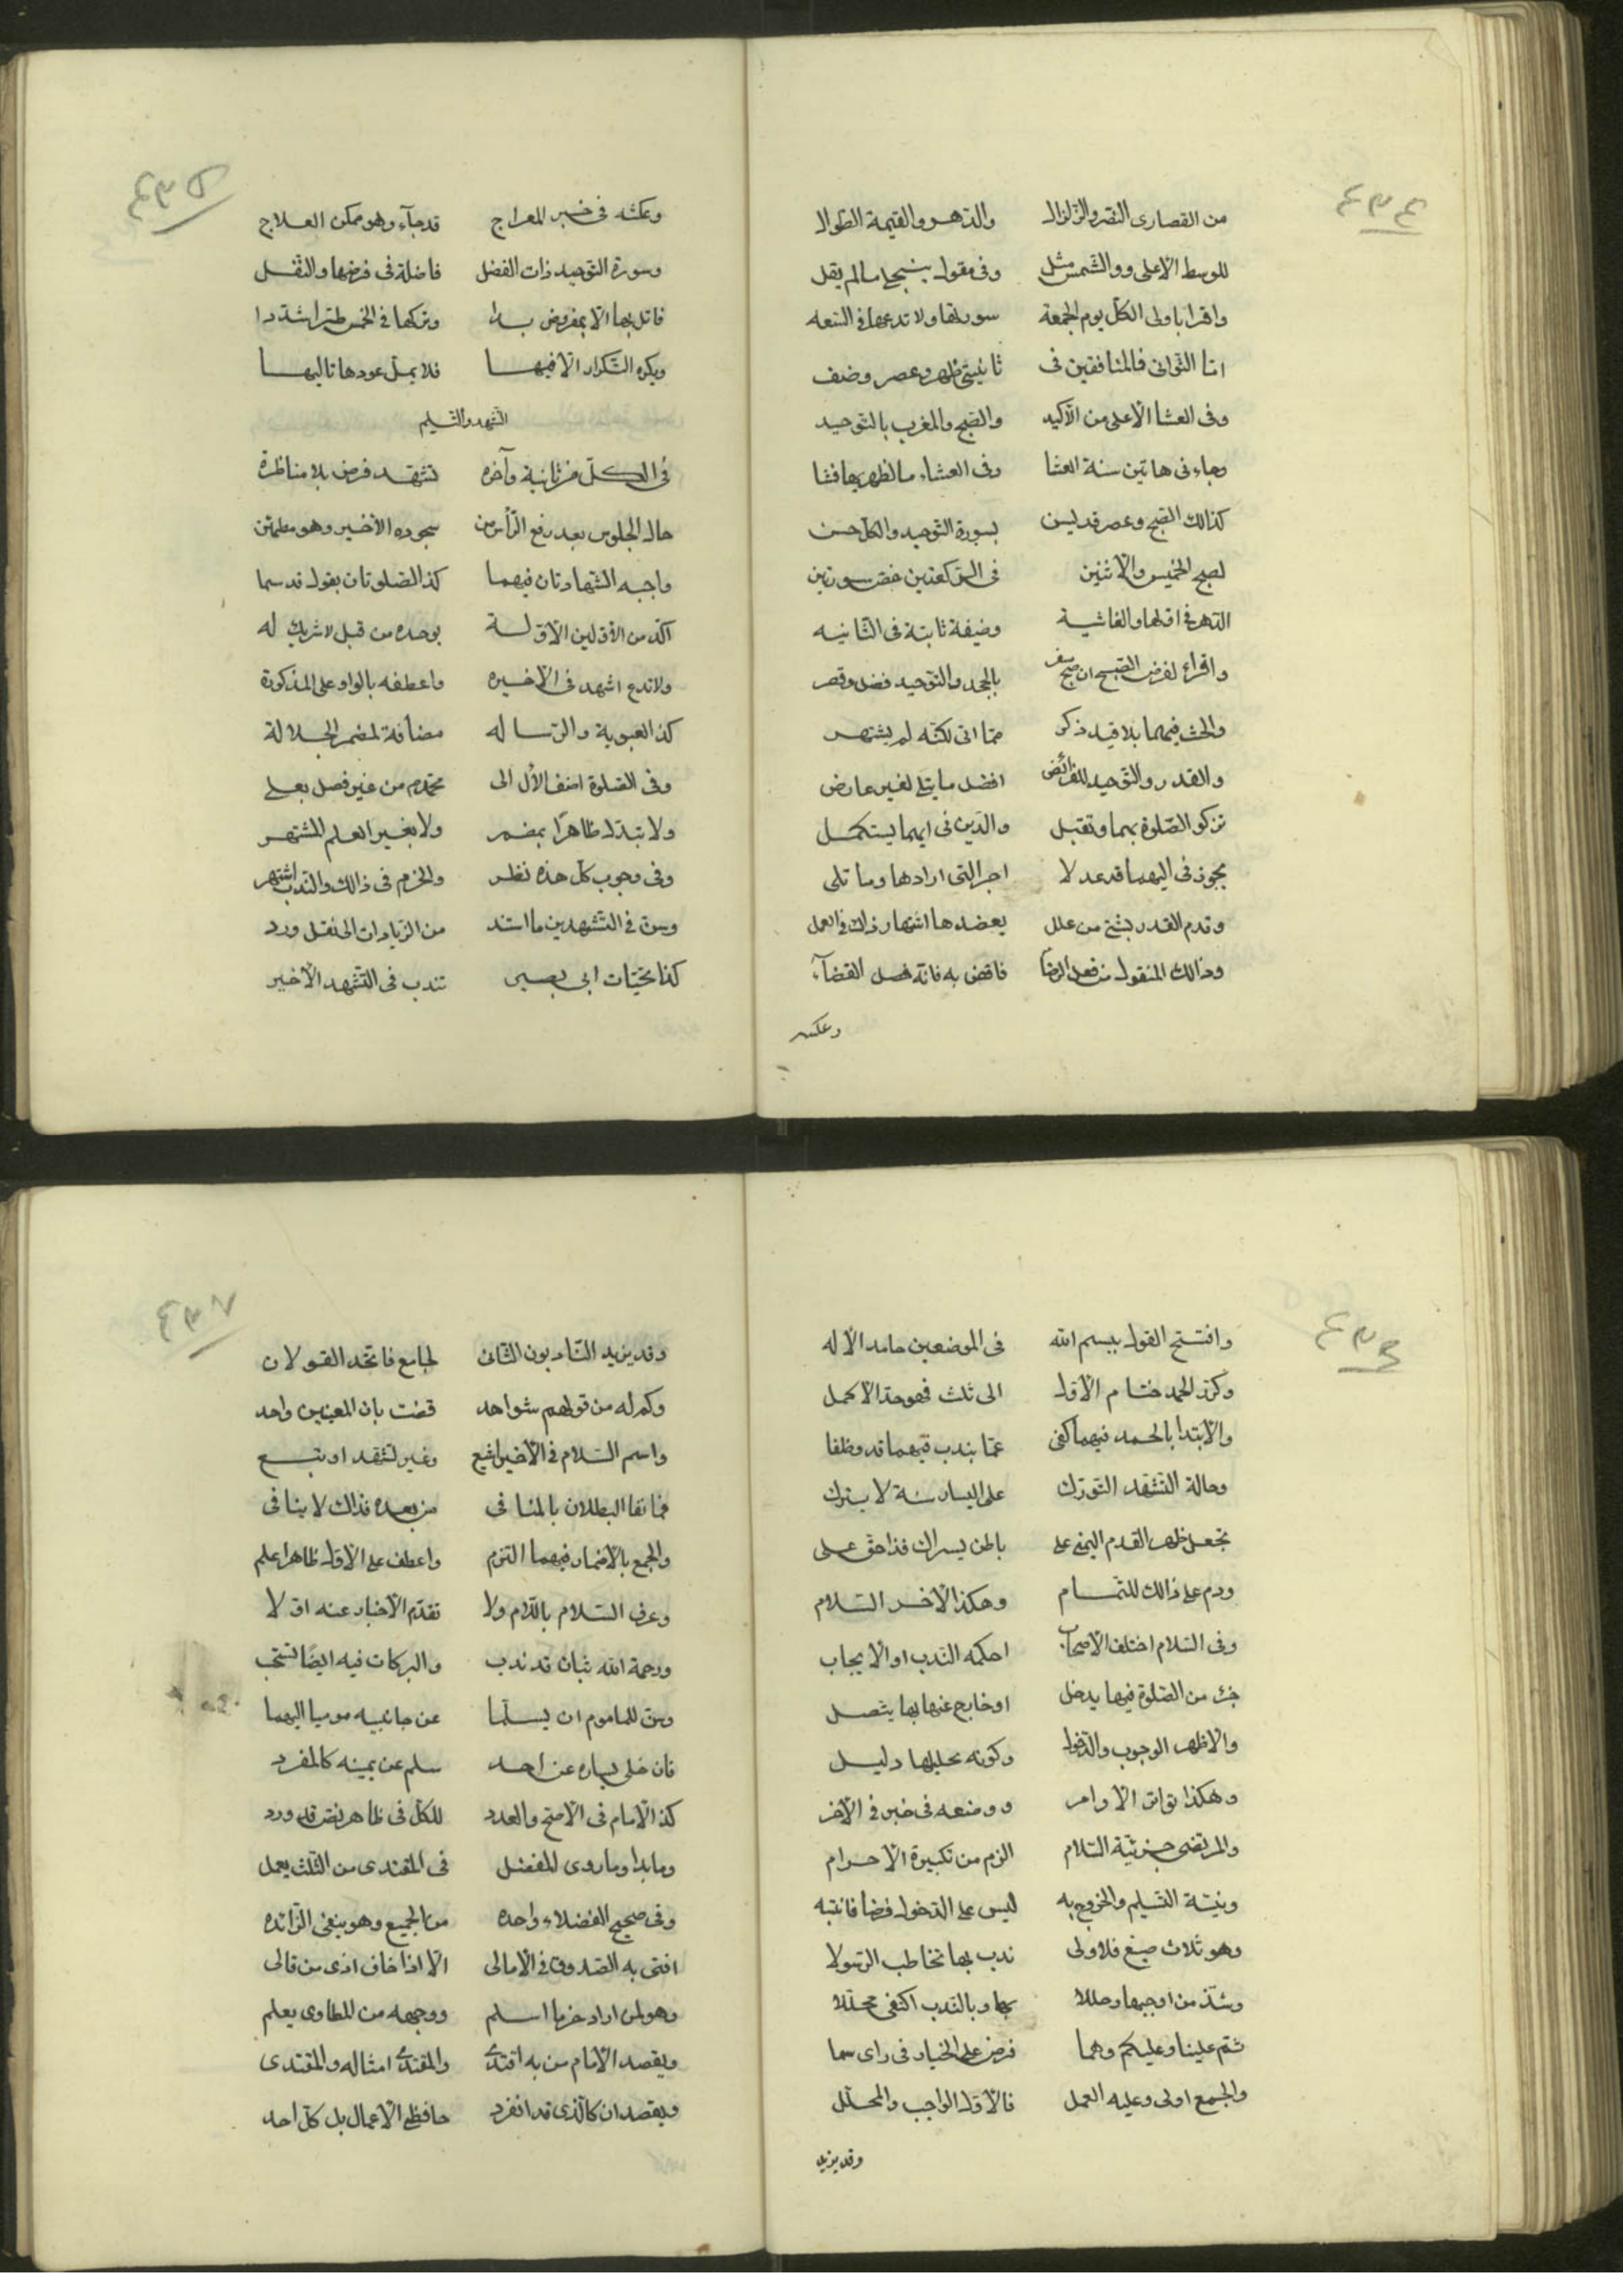 ٤٣٤
من القصارى النصر والزلزال والدهر والقيمة الطوال
للوسط الاعلى ووالشمس مثل وفى مقول ينبجى ما لم يقل
واقرا باولى الكل يوم الجمعة سورتها ولا تدعها فى السعه
اما الثوانى فالمنافقين فى ثانيتى ظهر وعصر وضف
وفى العشا الاعلى من الاكيد والصبح والمغرب بالتوحيد
وجاء فى هاتين سنة العشا وفى العشاء ما لظهريها فشا
كذالك الصبح وعصر قد ليس بسورة التوحيد والكل حسن
لصبح الخميس والاثنين فى الركعتين خص سورتين
الدهر فى اولها والغاشية وضيفة ثابتة فى الثانيه
واقراء لفرض الصبح ان صبح سفر بالجحد والتوحيد فضل وقصر
والحث فيهما بلا قيد ذكر مما اتى لكنه لم يشتهر
والقدر والتوحيد للفرائض افضل ما يتلى لغير عارض
تزكو الصلوة بهما وتقبل والدين فى ايهما يستكمل
يجوز فى اليهما قد عدلا اجر التى ارادها وما تلى
وقدم القدر بشىء من علل يعضدها اشتهار ذاك فى العمل
وذالك المنقول من فعل الرضا فاقض به فانه فصل القضآء
وعكسه
٤٣٥
وعكسه فى خبر المعراج قد جآء وهو ممكن العلاج
وسورة التوحيد ذات الفضل فاضلة فى فرضها والنفل
فاتل بها الا بمفروض بدا وتركها فى الخمس طرا شددا
ويكره التكرار الا فيها فلا يمل عودها تاليها
التشهد والتسليم
فى الكل من ثانية وآخره تشهد فرض بلا مناظرة
حال الجلوس بعد رفع الرأس من سجوده الاخير وهو مطمئن
واجبه الشهادتان فيهما كذا الصلوتان بقول قد سما
اكد من الاولين الاوله بوحده من قبل لا شريك له
ولا تدع اشهد فى الاخيره واعطفه بالواو على المذكورة
كذا العبوية والرساله مضافة لمضمر الجلالة
وفى الصلوة اضف الأل الى محمد من غير فصل بعلى
ولا تبدل ظاهرا بمضمر ولا بغير العلم المشتهر
وفى وجوب كل هذه نظر والحزم فى ذالك والندب اشتهر
وسن فى التشهدين ما استند من الزيادات الى نقل ورد
كذا تحيات ابى بصير تندب فى التشهد الاخير
٤٣٦
وافتتح القول ببسم الله فى الموضعين حامد الاله
وكرر الحمد ختام الاول الى ثلث فهو حد الاكمل
والابتدا بالحمد فيهما كفى عما بندب فيهما قد وظفا
وحالة التشهد التورك على اليسار سنة لا يترك
تجعل ظهر القدم اليمنى على باطن يسراك فذا حق على
ودم على ذالك للتمام وهكذا الاخر السلام
وفى السلام اختلف الاصحاب احكمه الندب او الايجاب
جزء من الصلوة فيها يدخل او خارج عنها بها يتصل
والاظهر الوجوب والدخول وكونه تحليلها دليل
وهكذا تواتر الاوامر ووضعه فى خبر فى الآخر
والمرتضى جزئية السلام الزم من تكبيرة الاحرام
ونية التسليم والخروج به ليس على الدخول فرضا فانتبه
وهو ثلاث صيغ فلاولى ندب بها تخاطب الرسولا
وشذ من اوجبها وحللا بها وبالندب اكتفى محللا
ثم علينا وعليكم وهما فرض على الخيار فى راى سما
والجمع اولى وعليه العمل فالاول الواجب والمحلل
وقد يزيد
٤٣٧
وقد يزيد النادبون الثانى لجامع فاتحد القولان
وكم له من قولهم شواهد قضت بان المعنيين واحد
واسم السلام فى الاخير اتبع وغير تشهد او تبع
فما نفا البطلان بالمنافى من بعده فذاك لا ينافى
والجمع بالاضمار فيهما التزم واعطف على الاول ظاهرا علم
وعرف السلام باللام ولا تقدم الاخبار عنه اولا
ورحمة الله بثان قد ندب والبركات فيه ايضا تستحب
وسن للماموم ان يسلما عن جانبيه موميا اليهما
فان خلى يساره عن احد سلم عن يمينه كالمفرد
كذا الامام فى الاصح والعدد للكل فى ظاهر نص قد ورد
وما بدا وما روى المفضل فى المقتدى من الثلث يعمل
وفى صحيح الفضلاء واحده من الجميع وهو ينفى الزائده
افتى به الصدوق فى الامالى الا اذا خاف اذى من قالى
وهو لمن اراد حزما اسلم ووجهه من المطاوى يعلم
ويقصد الامام من به اقتدى والمقتدى امثاله والمقتدى
ويقصدان كالذى قد انفرد حافظى الاعمال بل كل احد